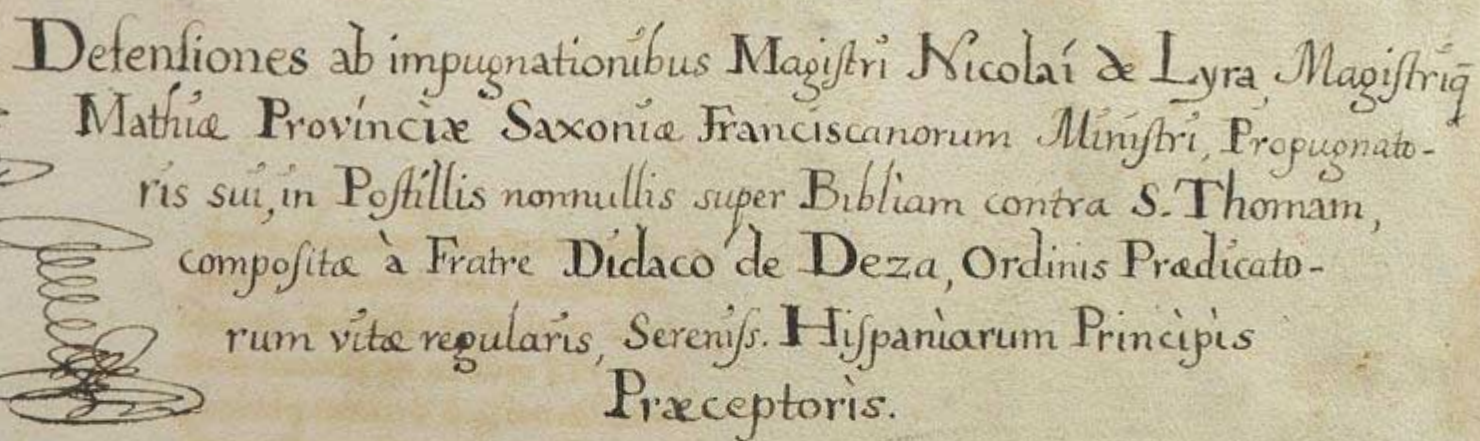 Defenſiones ab impugnationibus Magiſtri Nicolaí de Lyra, Magiſtriq̄
Mathiæ Provinciæ Saxoniæ Franciscanorum Miniſtri, Propugnato-
ris sui, in Poſtillis nonnullis super Bibliam contra S. Thomam,
compoſitæ à Fratre Didaco de Deza, Ordinis Prædicato-
rum vitæ regularis, Sereniſs. Hiſpaniarum Principis
Præceptoris.